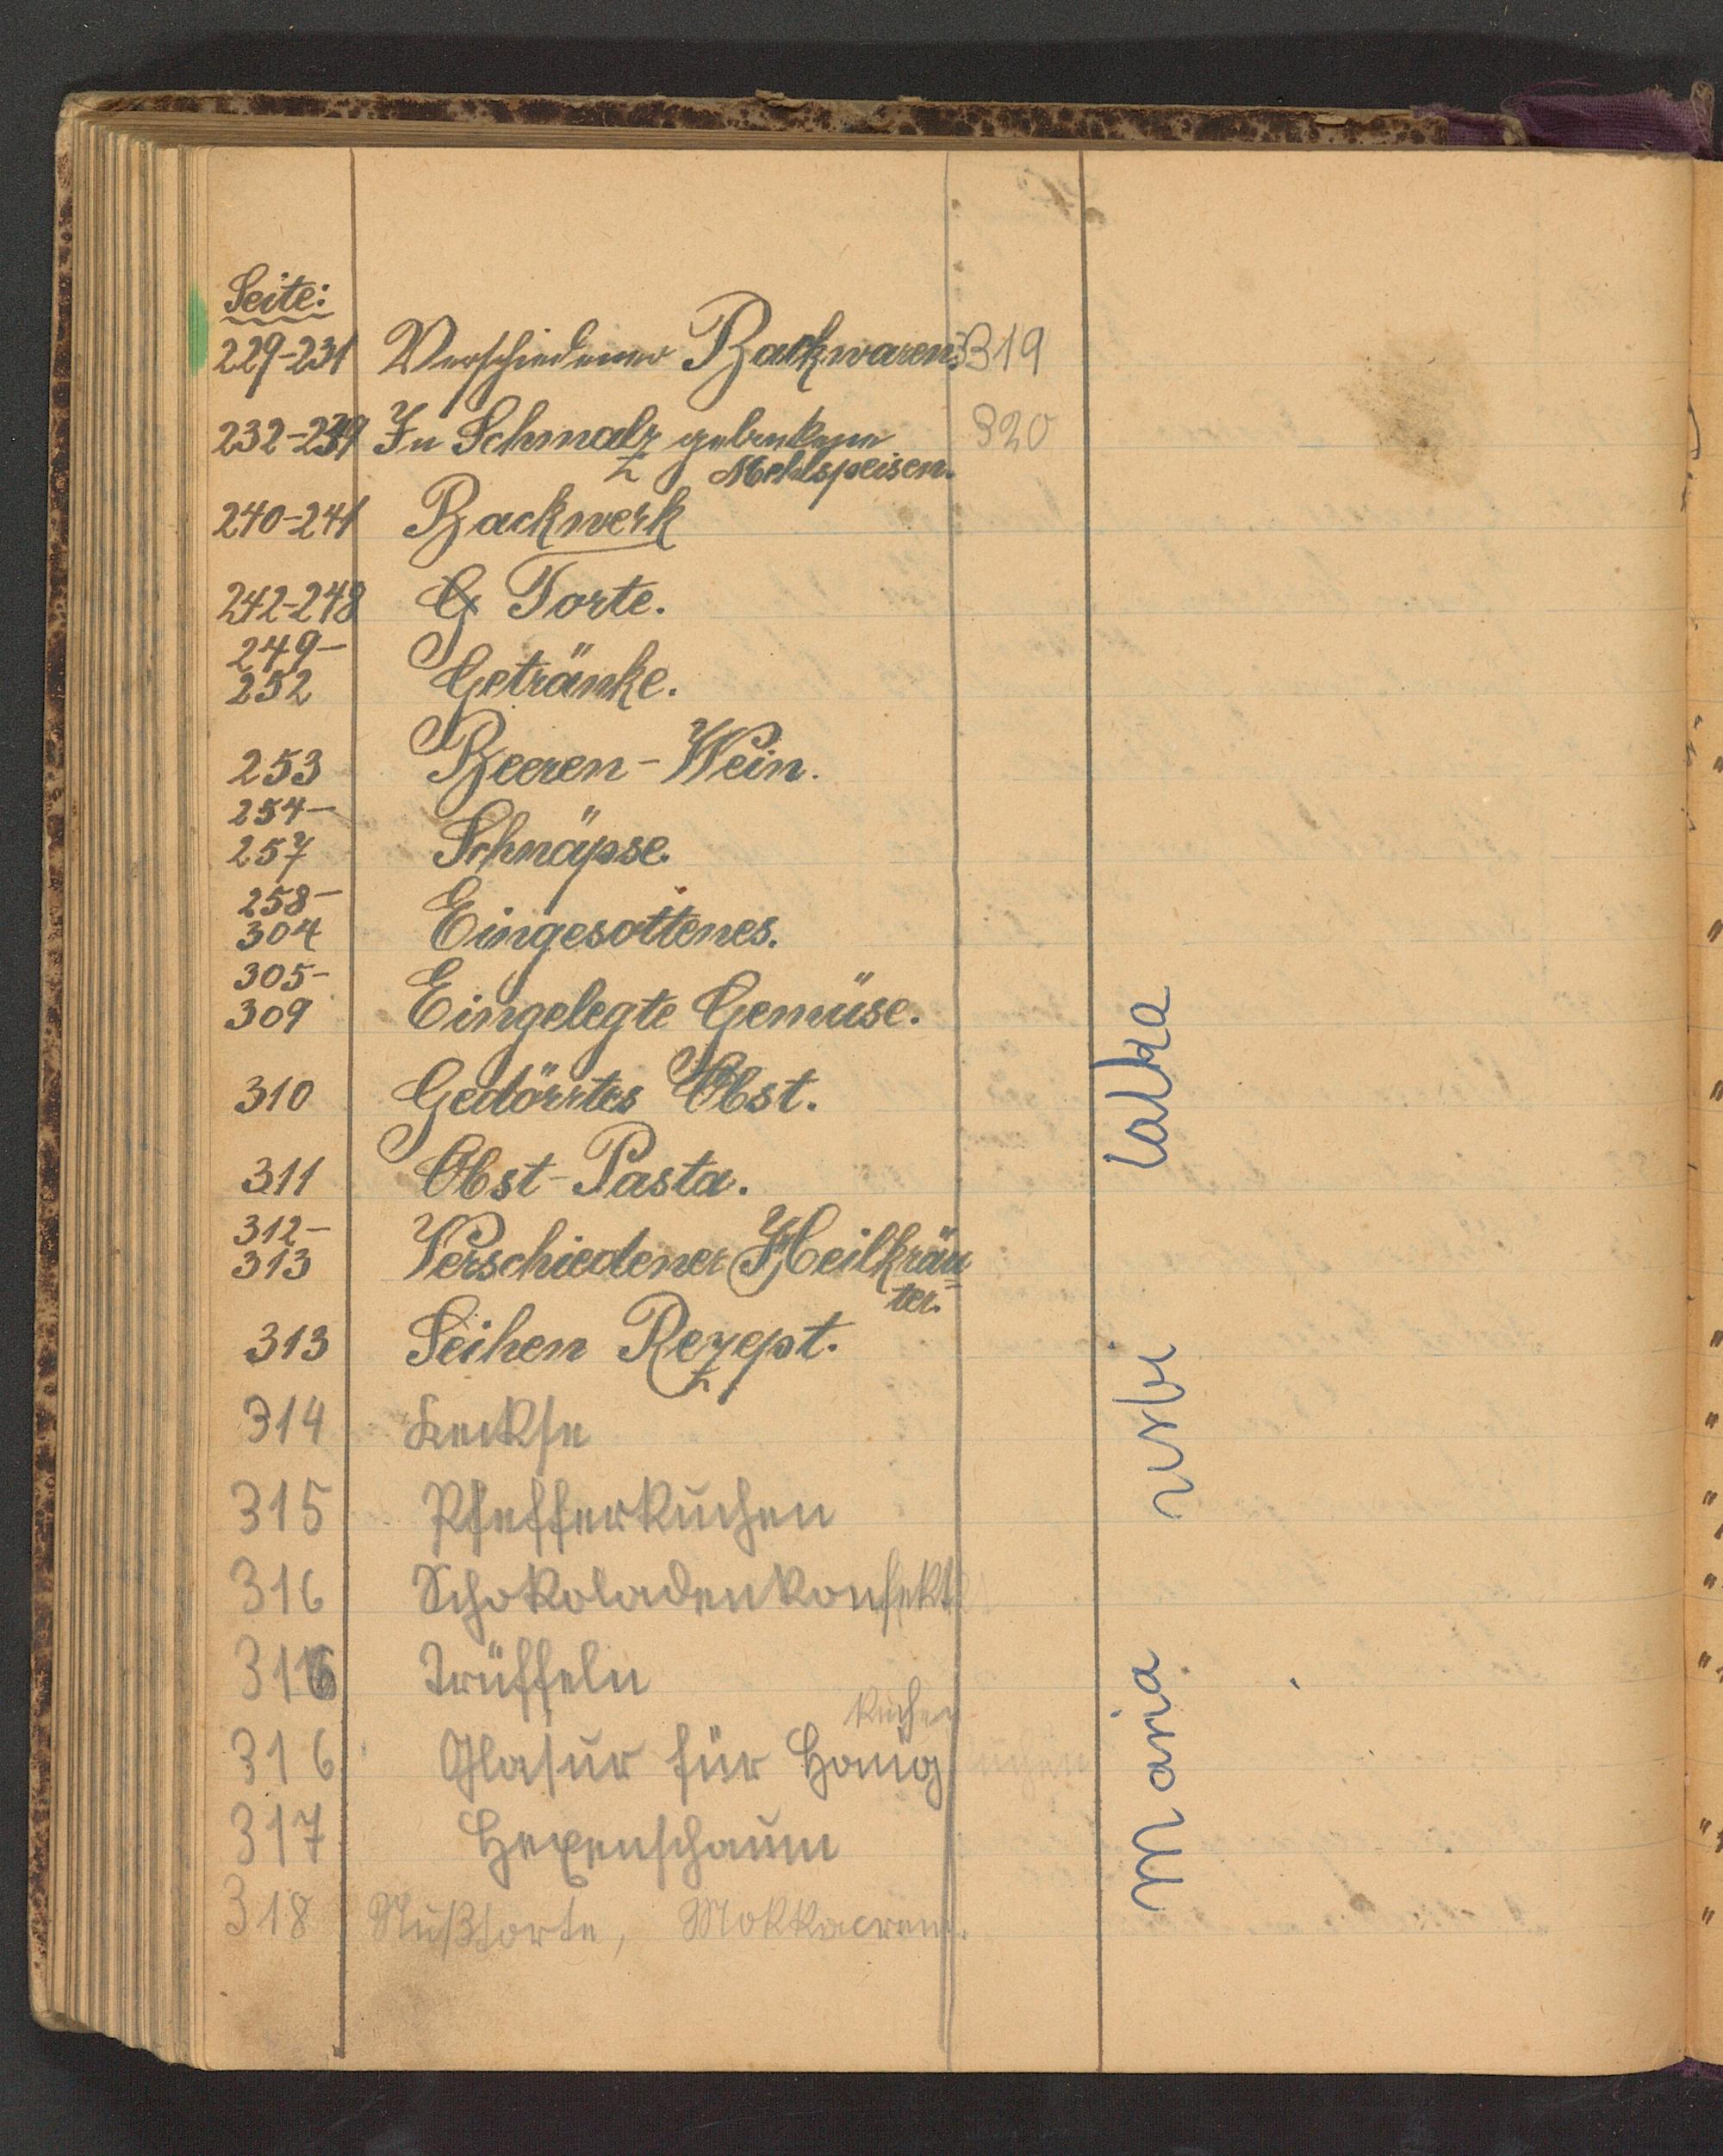 Seite:
229-231 Verschiedener Backwaren. 319
232-239 In Schmalz gebackene 320
Mehlspeisen.
240-241 Backwerk
242-248 G Torte.
249-
252 Getränke.
253 Beeren-Wein.
254-
257 Schnäpse.
258-
304 Eingesottenes.
305-
309 Eingelegte Gemüse.
310 Gedörrtes Obst.
311 Obst-Pasta.
312-
313 Verschiedener Heilkräu=
ter.
313 Seihen Rezept.
314 Keckse
315 Pfefferkuchen
316 Schokoladenkonfekt
316 Trüffeln
kuchen
316 Glasur für Honig
317 Hexenschaum
318 Nußtorte, Mokkacrem.
Maria rusbi lalka